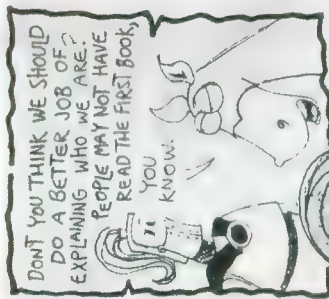 DON'T YOU THINK WE SHOULD
DO A BETTER JOB OF
EXPLAINING WHO WE ARE?
PEOPLE MAY NOT HAVE
READ THE FIRST BOOK,
YOU
KNOW.